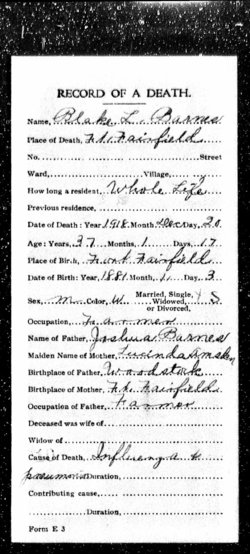 RECORD OF A DEATH.
Name, Blake L. Barnes
Place of Death, Ft. Fairfield
No. Street
Ward, Village,
How long a resident, Whole Life
Previous residence,
Date of Death: Year 1918 Month Dec Day, 20
Age: Years, 37 Months, 1 Days, 17
Place of Birth, Fort Fairfield
Date of Birth: Year 1881 Month, 11 Day, 3
Sex, M Color, W Married, Single, Widowed, or Divorced, S
Occupation, Farmer
Name of Father, Joshua Barnes
Maiden Name of Mother, Lucinda
Birthplace of Father, Woodstock
Birthplace of Mother, Ft. Fairfield
Occupation of Father, Farmer
Deceased was wife of
Widow of
Cause of Death, Influenza &
pneumonia Duration,
Contributing cause,
Duration,
Form E 3